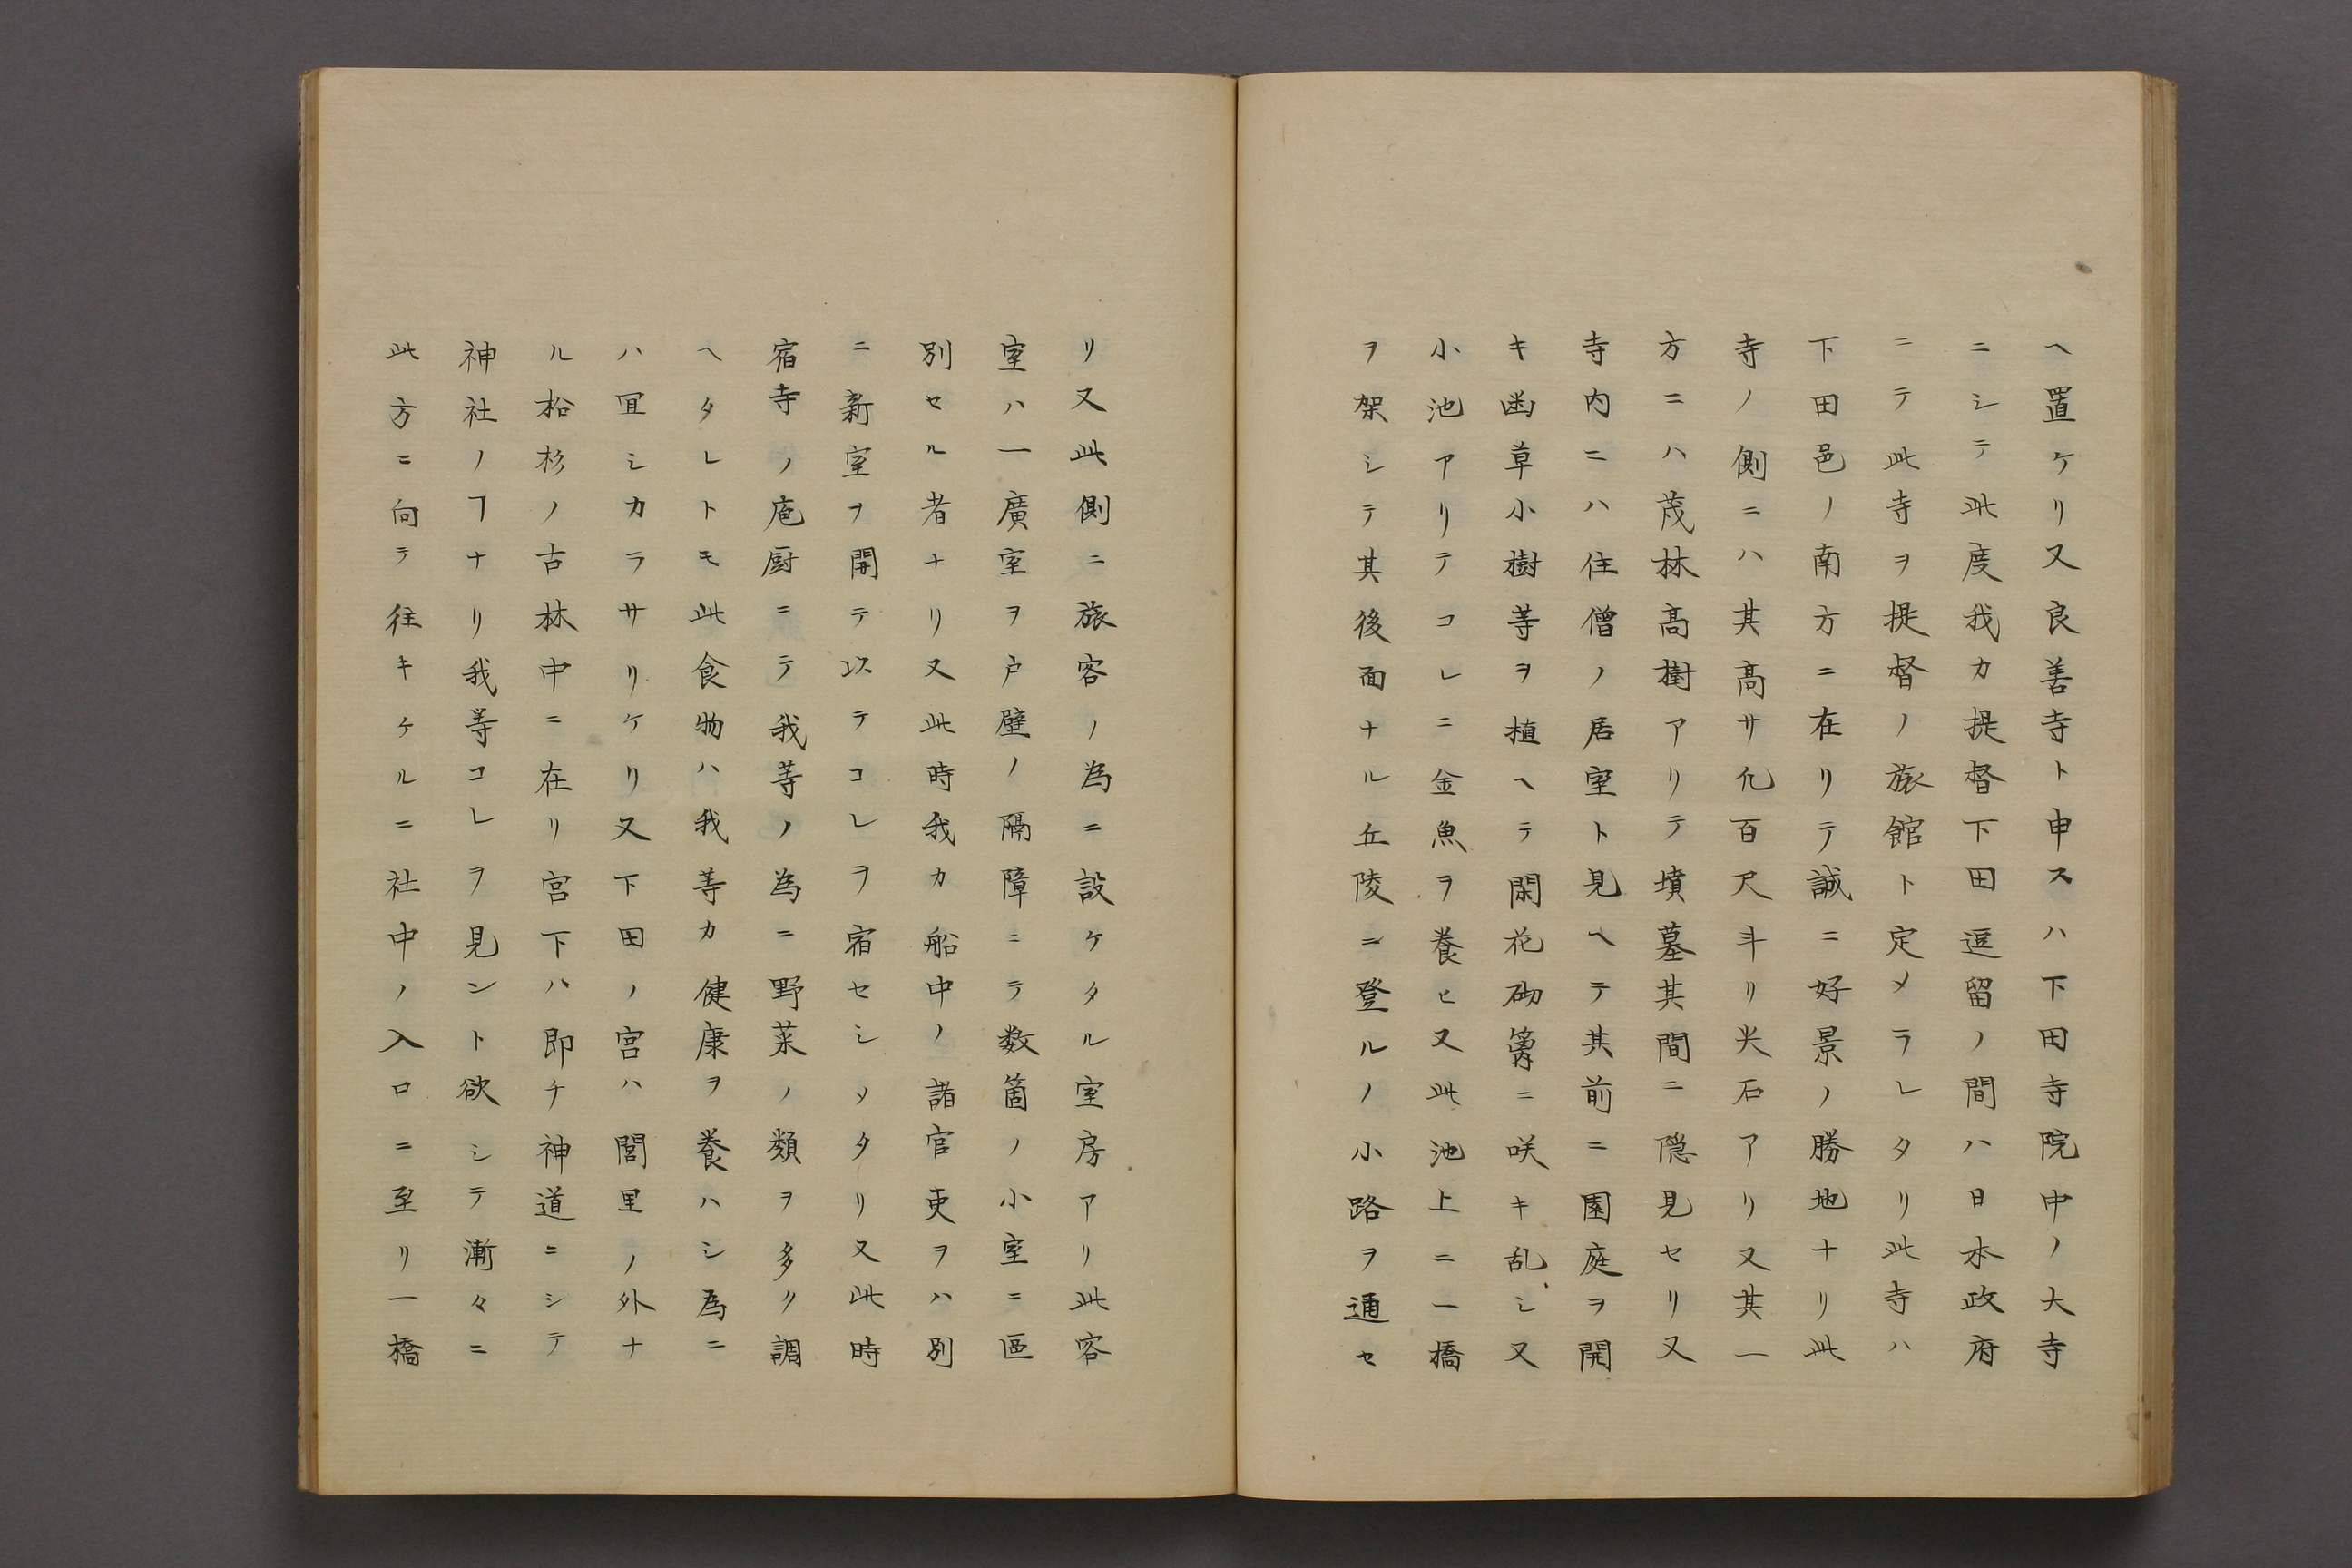 ヘ置ケリ又良善寺ト申スハ下田寺院中ノ大寺
ニシテ此度我カ提督下田逗留ノ間ハ日本政府
ニテ此寺ヲ提督ノ旅館ト定メラレタリ此寺ハ
下田邑ノ南方ニ在リテ誠ニ好景ノ勝地ナリ此
寺ノ側ニハ其高サ凢百尺斗リ尖石アリ又其一
方ニハ茂林高樹アリテ墳墓其間ニ隠見セリ又
寺内ニハ住僧ノ居室ト見ヘテ其前ニ園庭ヲ開
キ凾草小樹等ヲ植ヘテ閑花砌籌ニ咲キ乱シ又
小池アリテコレニ金魚ヲ養ヒ又此池上ニ一橋
ヲ架シテ其後面ナル丘陵ニ登ルノ小路ヲ通セ
リ又此側ニ旅客ノ為ニ設ケタル室房アリ此客
室ハ一廣室ヲ戸壁ノ隔障ニテ数箇ノ小室ニ區
別セル者ナリ又此時我カ船中ノ諸官吏ヲハ別
ニ新室ヲ開テ以テコレヲ宿セシメタリ又此時
宿寺ノ庖厨ニテ我等ノ為ニ野菜ノ類ヲ多ク調
ヘタレトモ此食物ハ我等カ健康ヲ養ハシ為ニ
ハ冝シカラサリケリ又下田ノ宮ハ閭里ノ外ナ
ル松杉ノ古林中ニ在リ宮下ハ即チ神道ニシテ
神社ノヿナリ我等コレヲ見ント欲シテ漸々ニ
此方ニ向テ往キケルニ社中ノ入口ニ至リ一橋